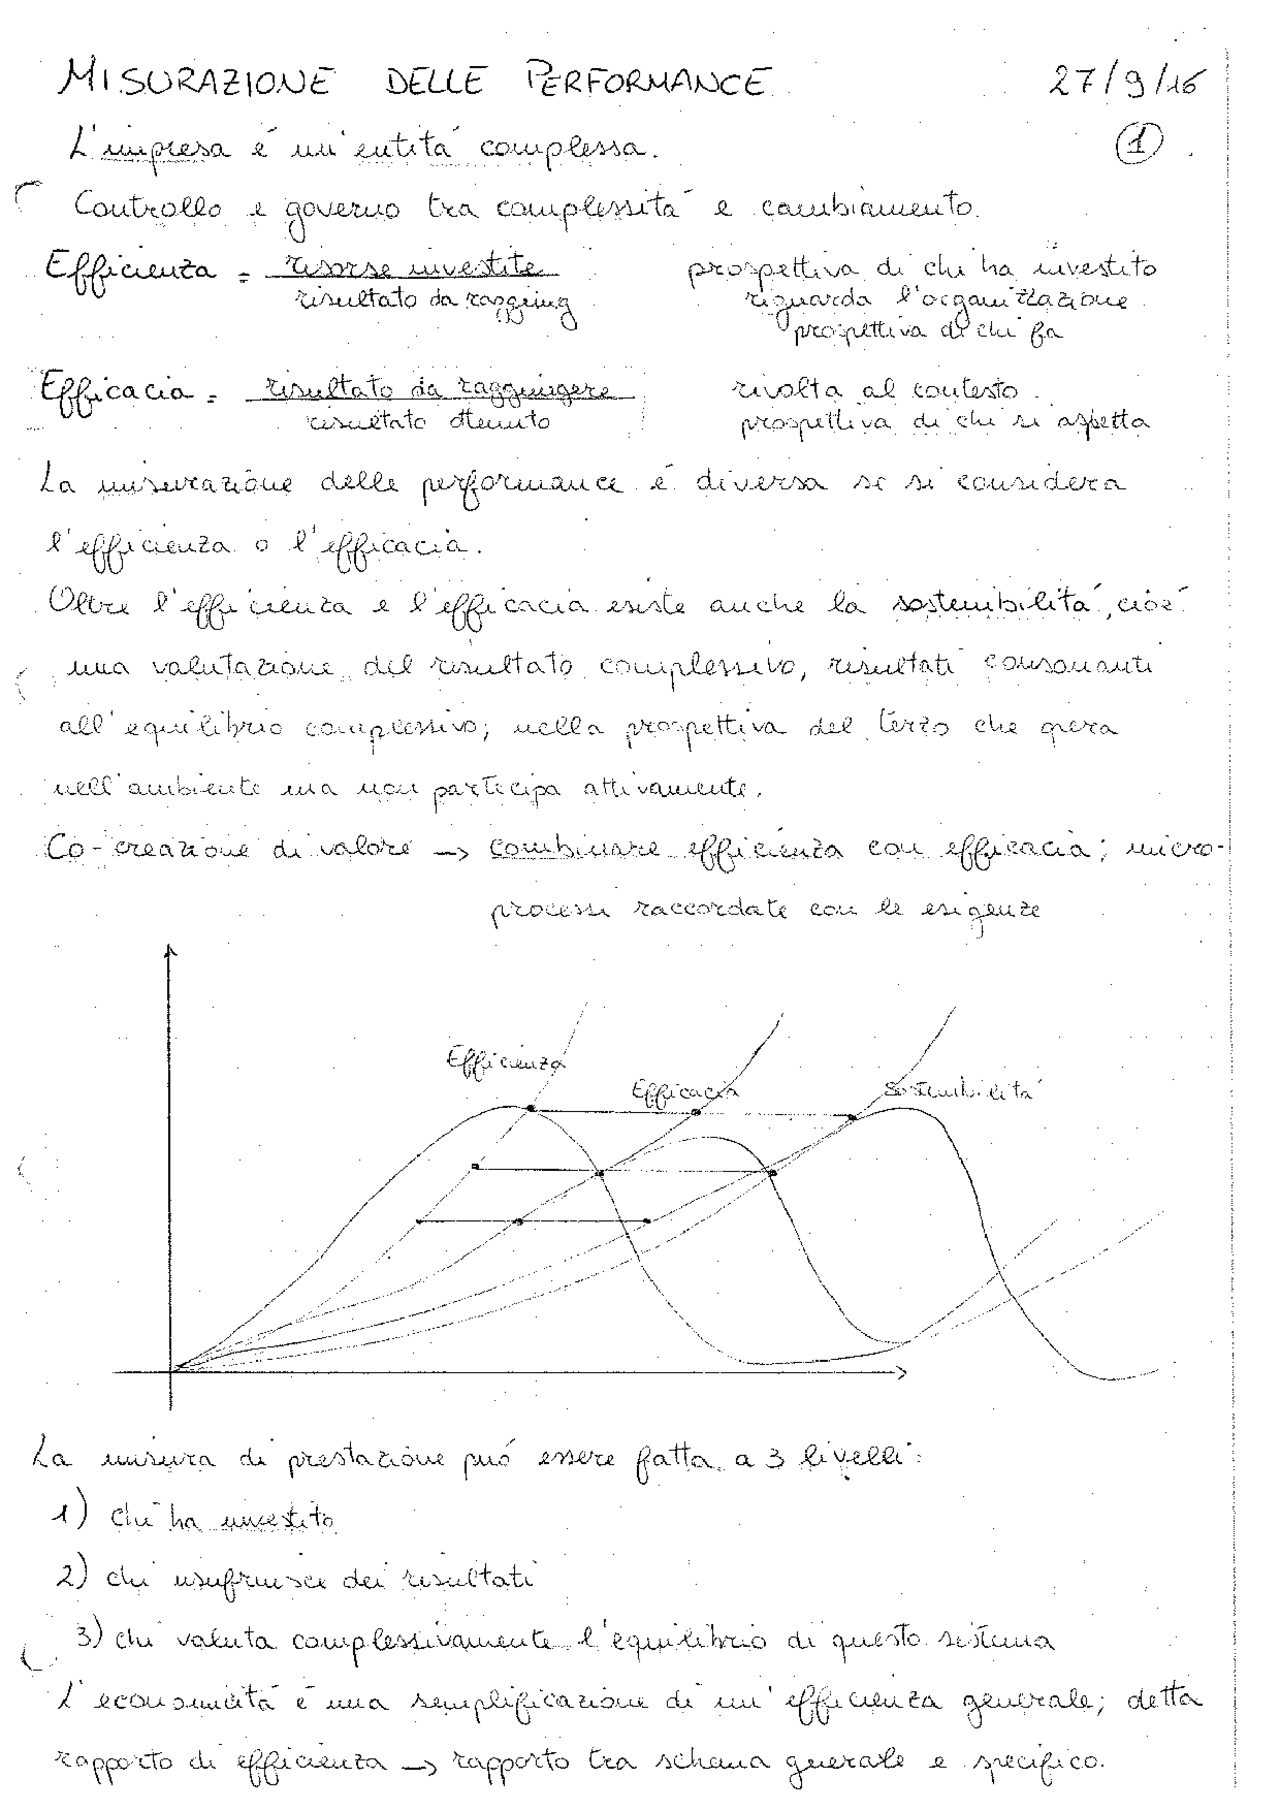 MISURAZIONE DELLE PERFORMANCE 27/9/16
1
L'impresa è un'entità complessa.
Controllo e governo tra complessità e cambiamento.
Efficienza = risorse investite / risultato da raggiung
prospettiva di chi ha investito
riguarda l'organizzazione
prospettiva di chi fa
Efficacia = risultato da raggiungere / risultato ottenuto
rivolta al contesto
prospettiva di chi si aspetta
La misurazione delle performance è diversa se si considera
l'efficienza o l'efficacia.
Oltre l'efficienza e l'efficacia esiste anche la sostenibilità, cioè
una valutazione del risultato complessivo, risultati consonanti
all'equilibrio complessivo; nella prospettiva del terzo che opera
nell'ambiente ma non partecipa attivamente.
Co-creazione di valore → combinare efficienza con efficacia; micro-
processi raccordate con le esigenze
Efficienza
Efficacia
Sostenibilità
La misura di prestazione può essere fatta a 3 livelli:
1) chi ha investito
2) chi usufruisce dei risultati
3) chi valuta complessivamente l'equilibrio di questo sistema
L'economicità è una semplificazione di un'efficienza generale; detta
rapporto di efficienza → rapporto tra schema generale e specifico.